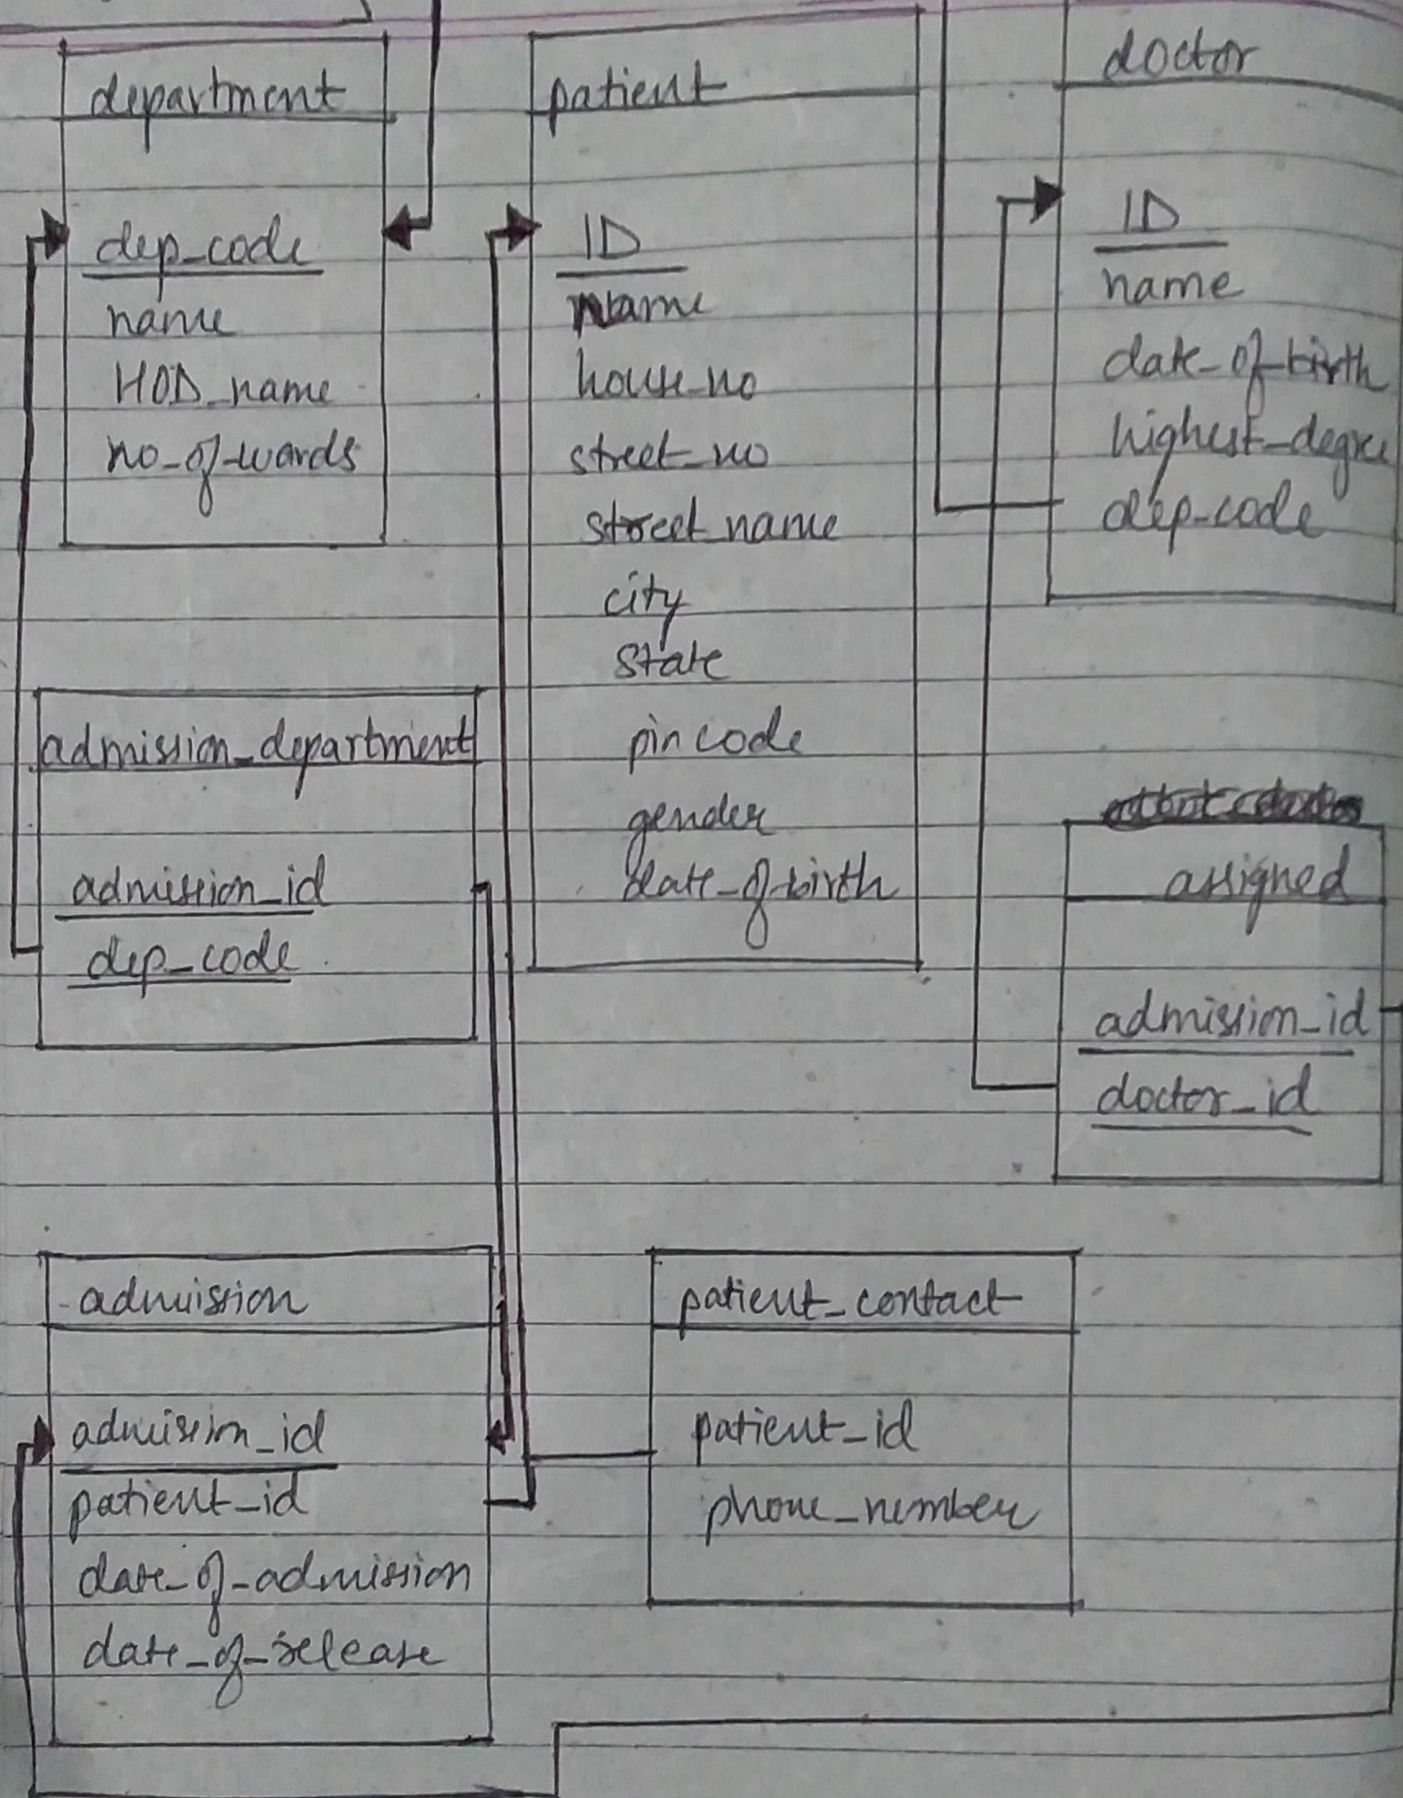 department
dep_code
name
HOD_name
no_of_wards
patient
ID
name
house_no
street_no
street_name
city
state
pincode
gender
date_of_birth
doctor
ID
name
date_of_birth
highest_degree
dep_code
admission_department
admission_id
dep_code
assigned
admission_id
doctor_id
admission
admission_id
patient_id
date_of_admission
date_of_release
patient_contact
patient_id
phone_number